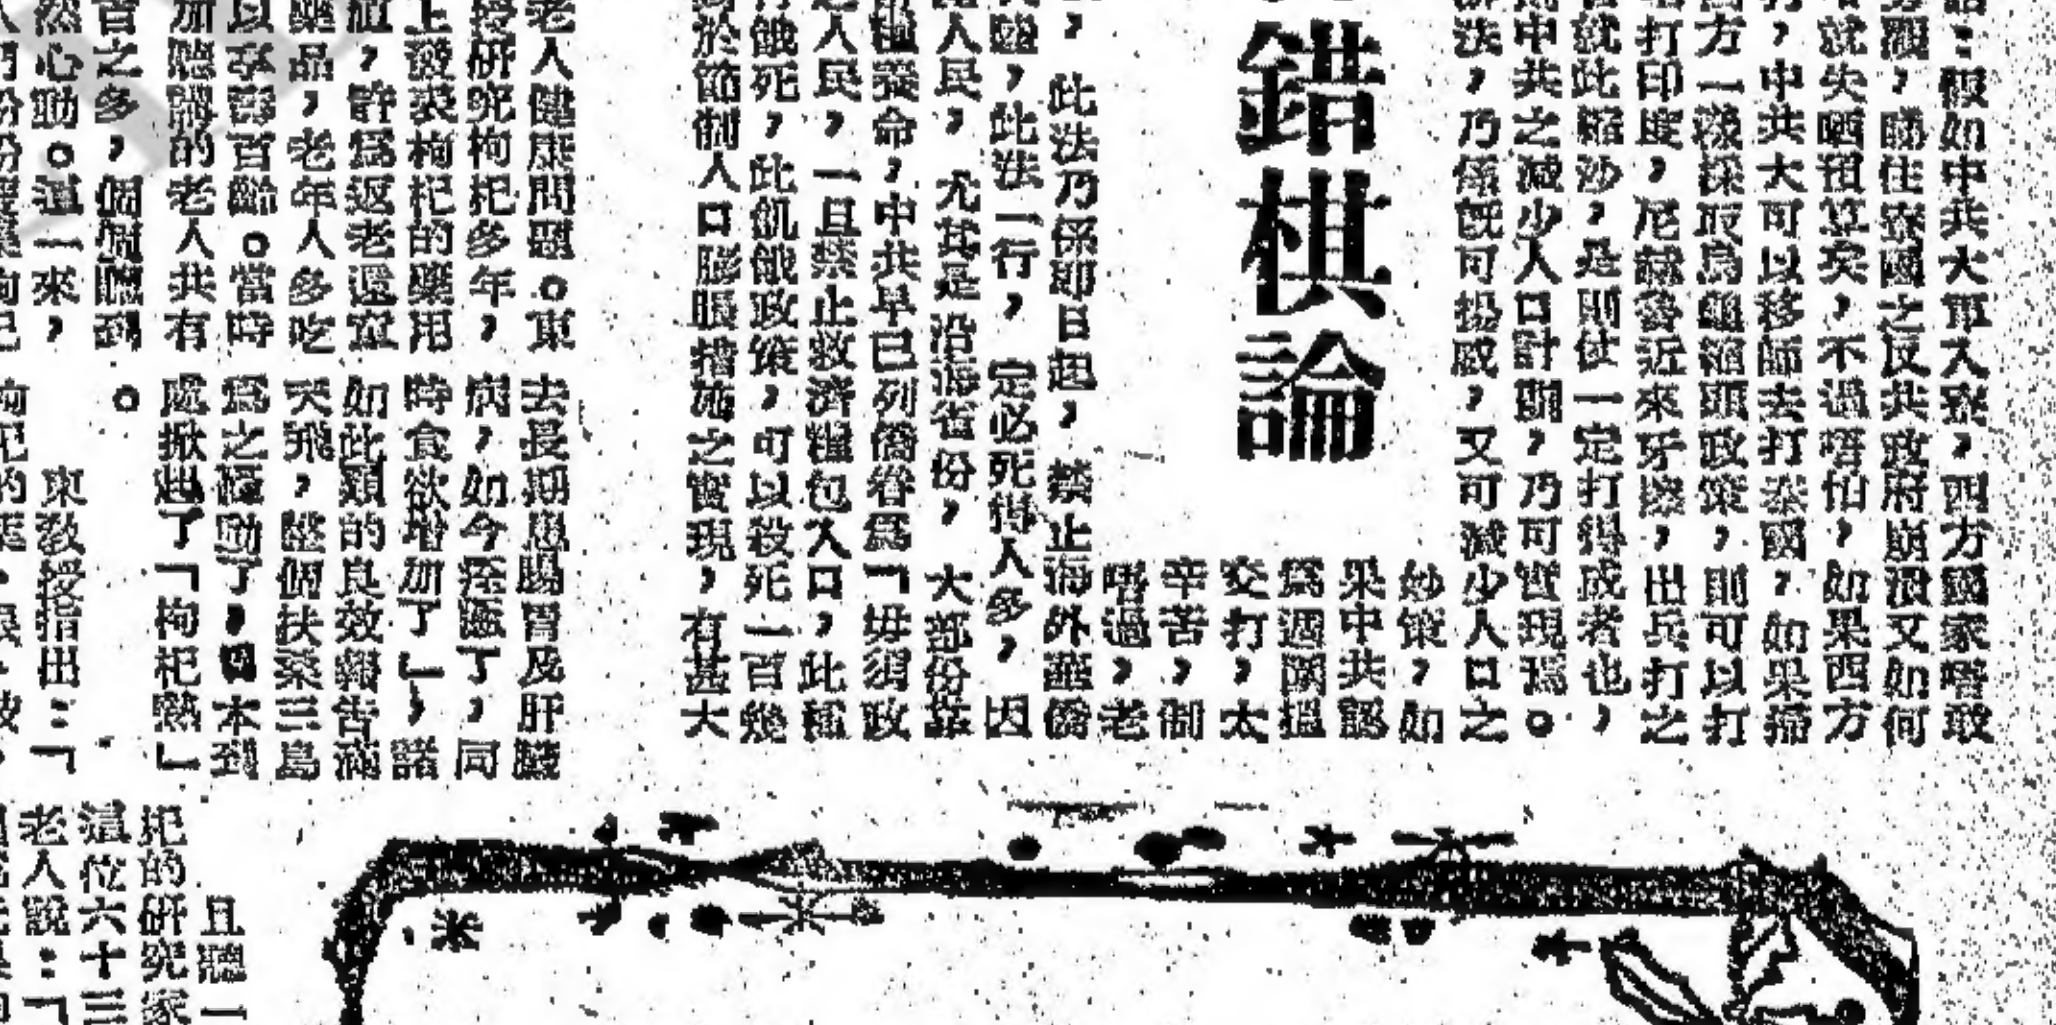 話：假如中共大軍入寮，西方國家唔敢
旁觀，睇住寮國之反共政府崩潰又如何
者就失晒祖算矣，不過唔怕，如果西方
打，中共大可以移師去打泰國，如果
西方一樣採取烏龜縮頭政策，則可以打
打印度，尼赫魯近來牙擦，出兵打之
就此縮沙，是則仗一定打得成者也，
中共之減少人口計劃，乃可實現焉。
辦法，乃係既可揚威，又可減少人口之
妙策，如
果中共認
為週圍搵
交打，太
辛苦，制
唔過，老
，此法乃係即日起，禁止海外華僑
，此法一行，定必死得人多，因
人民，尤其是沿海省份，大部份靠
糧養命，中共早已列僑眷為「毋須政
人民，一旦禁止救濟糧包入口，此種
餓死，此飢餓政策，可以殺死一百幾
於節制人口膨脹措施之實現，有甚大
錯棋論
老人健康問題。東
授研究枸杞多年，
上發表枸杞的藥用
，許為返老還童
藥品，老年人多吃
以享壽百齡。當時
加聽講的老人共有
百之多，個個聽到
然心動。這一來，
去長期患腸胃及肝臟
病，如今痊癒了，同
時食欲增加了」，諸
如此類的良效報告滿
天飛，整個扶桑三島
為之轟動了，日本到
處掀起了「枸杞熱」
。
東教授指出：「
且聽一
杞的研究家
這位六十三
老人說：「